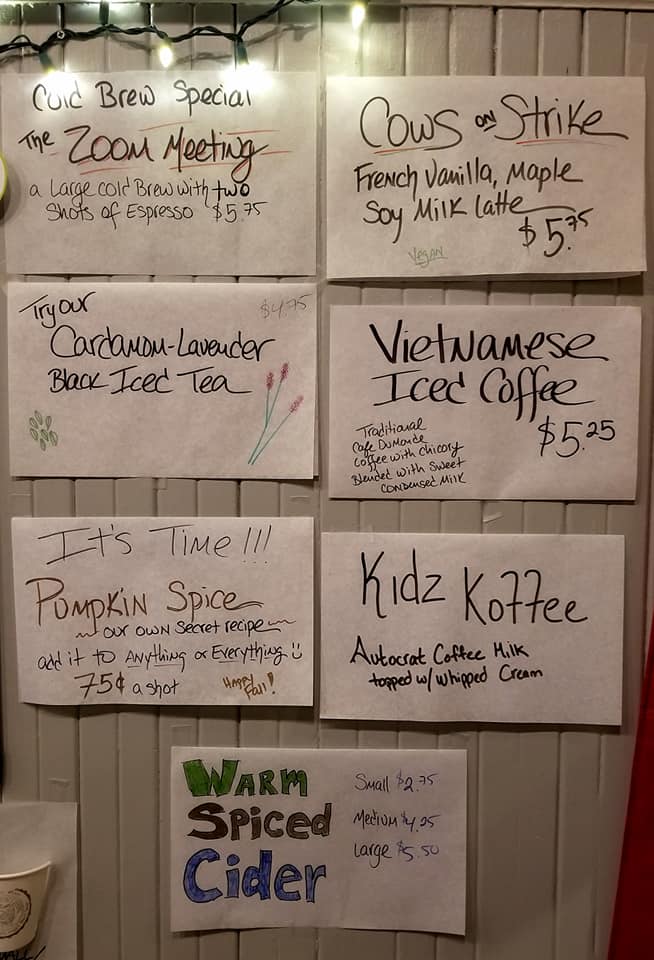 Cold Brew Special
The Zoom Meeting
a Large cold Brew with two
Shots of Espresso $5.75
Cows on Strike
French Vanilla, Maple
Soy Milk Latte
$5.75
Vegan
Try our
$4.75
Cardamom-Lavender
Black Iced Tea
Vietnamese
Iced Coffee
$5.25
Traditional
Cafe DuMonde
Coffee with Chicory
Blended with Sweet
Condensed Milk
It's Time!!!
Pumpkin Spice
our own secret recipe
add it to Anything or Everything
75¢ a shot
Happy
Fall!
Kidz Koffee
Autocrat Coffee Milk
topped w/ whipped Cream
Warm
Spiced
Cider
Small $2.75
Medium $4.25
Large $5.50